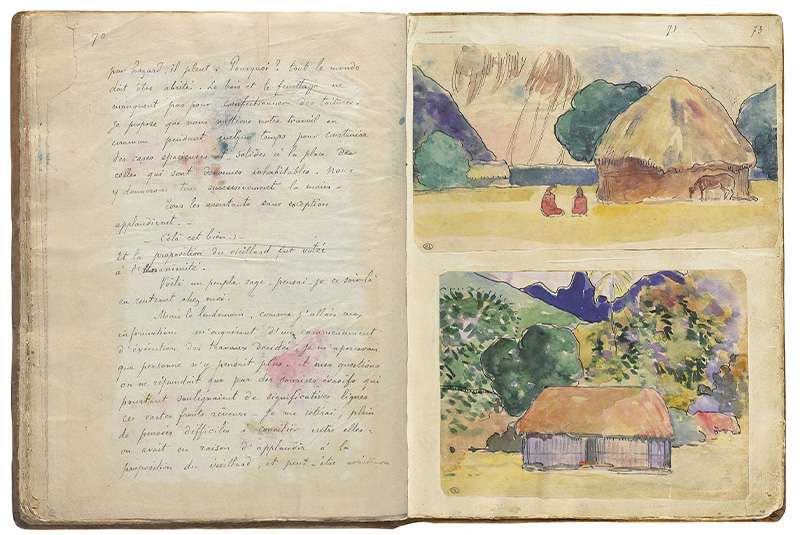 70
par hazard, il pleut. Pourquoi? tout le monde
doit être abrité. Le bois et le feuillage ne
manquent pas pour confectionner des toitures.
Je propose que nous mettions notre travail en
commun pendant quelque temps pour construire
des cases spacieuses et solides à la place de
celles qui sont devenues inhabitables. Nous
y donnerons tous successivement la main. -
Tous les assistants sans exception
applaudirent. -
- Cela est bien! -
Et la proposition du vieillard fut votée
à l'unanimité.
Voilà un peuple sage, pensai-je ce soir-là
en rentrant chez moi.
Mais le lendemain, comme j'allais aux
informations m'enquérant d'un commencement
d'exécution des travaux décidés, je m'aperçus
que personne n'y pensait plus. et mes questions
on ne répondait que par des sourires évasifs qui
pourtant soulignaient de significatives lignes
ces vastes fronts rêveurs. Je me retirai, plein
de pensées difficiles à concilier entre elles:
on avait eu raison d'applaudir à la
proposition du vieillard, et peut-être
71
73